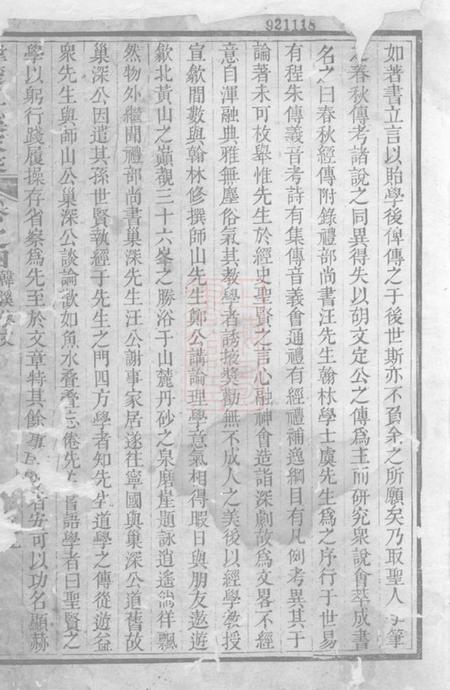 921118
如著書立言以貽學後俾傳之于後世斯亦不負余之所願矣乃取聖人手筆
之春秋傳考諸說之同異得失以胡文定公之傳爲主而研究衆說會萃成書
名之曰春秋經傳附錄禮部尚書汪先生翰林學士虞先生爲之序行于世易
有程朱傳義音考詩有集傳音義會通禮有經禮補逸綱目有凡例考異其于
論著未可枚舉惟先生於經史聖賢之言心融神會造詣深劇故爲文畧不經
意自渾融典雅無塵俗氣其教學者誘掖獎勸無不成人之美後以經學教授
宣歙間數與翰林修撰師山先生鄭公講論理學意氣相得暇日與朋友遨遊
歙北黃山之巔覩三十六峯之勝浴于山麓丹砂之泉磨崖題詠逍遙徜徉飄
然物外繼聞禮部尚書巢深先生汪公謝事家居遂往寧國與巢深公道舊故
巢深公因遣其孫世賢執經于先生之門四方學者知先生道學之傳從遊益
衆先生與師山公巢深公談論歡如魚水疊疊忘倦先生嘗語學者曰聖賢之
學以躬行踐履操存省察爲先至於文章特其餘事 者安可以功名顯赫